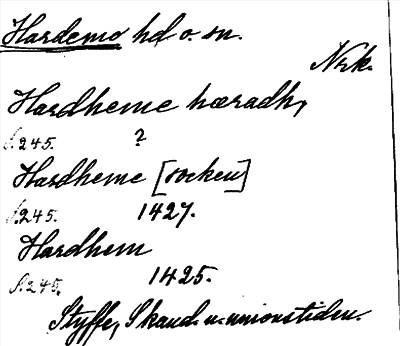 Hardemo hd o. sn.
Nrk.
Hardheme hæradh,
S. 245. ?
Hardheme [socken]
S. 245. 1427.
Hardhem
S. 245. 1425.
Styffe, Skand. u. unionstiden.